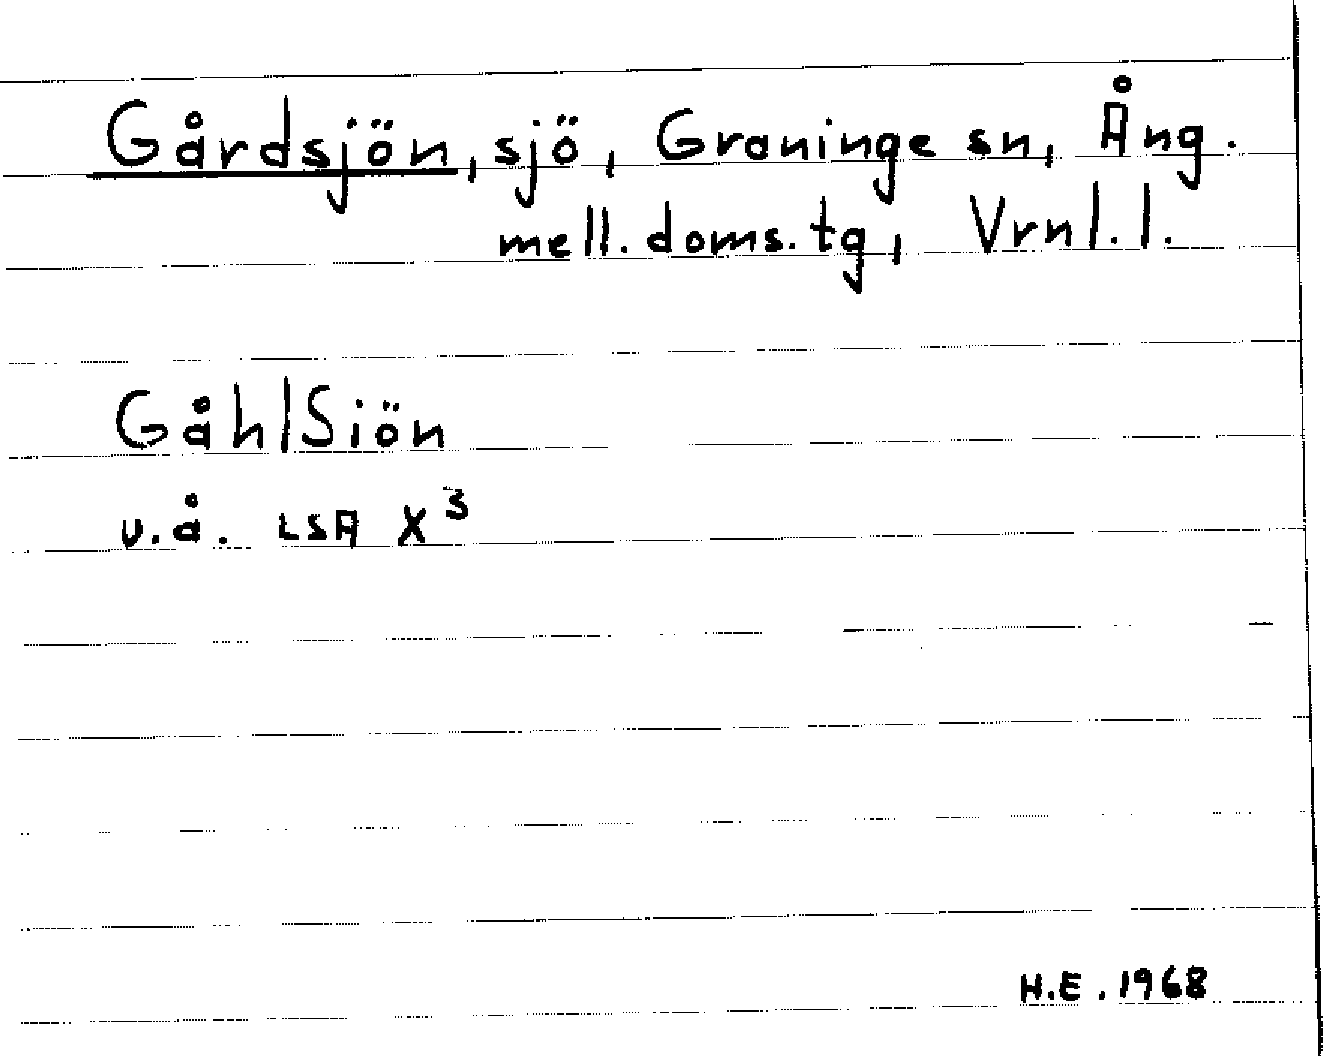 Gårdsjön, sjö, Graninge sn, Ång.
mell. doms. tg, Vrnl. l.
GåhlSiön
u.å. LSA X³
H.E. 1968